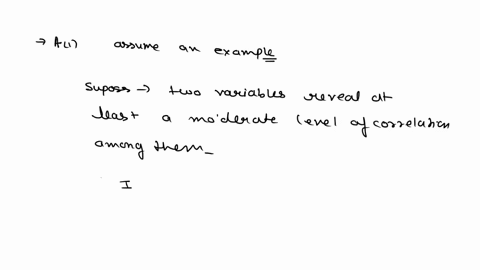 → A(1) assume an example
Supose → two variables reveal at
least a moderate level of correlation
among them_
I